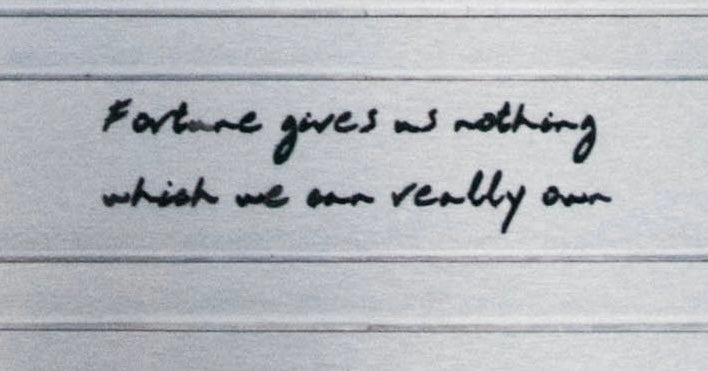 Fortune gives us nothing
which we can really own